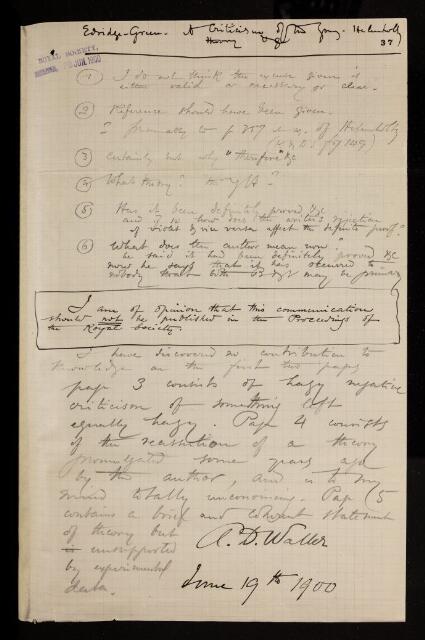 Edridge-Green. A Criticism of the Young-Helmholtz
Theory &c
37
ROYAL SOCIETY.
JUN. 1900
(1) I do not think the excuse given is
either valid or necessary or clear.
(2) Reference should have been given.
? presumably to p 357 of Helmholtz
(3) Certainly but why "therefore" &c
(4) What theory? the Y H?
(5) Has it been definitely proved &c
and if so how does the writer's rejection
of violet & vice versa affect the definite proof?
(6) What does the author mean now?
he said it had been definitely proved &c
now he says that it has occurred to
nobody that both B & V may be primary
I am of opinion that this communication
should not be published in the Proceedings of
the Royal Society.
I have discovered no contribution to
knowledge on the first two pages
page 3 consists of hazy negative
criticism of something left
equally hazy. Page 4 consists
of the reassertion of a theory
promulgated some years ago
by the author, and is to my
mind totally unconvincing. Page 5
contains a brief and coherent statement
of theory but
unsupported
by experimental
data.
A. D. Waller
June 19th 1900